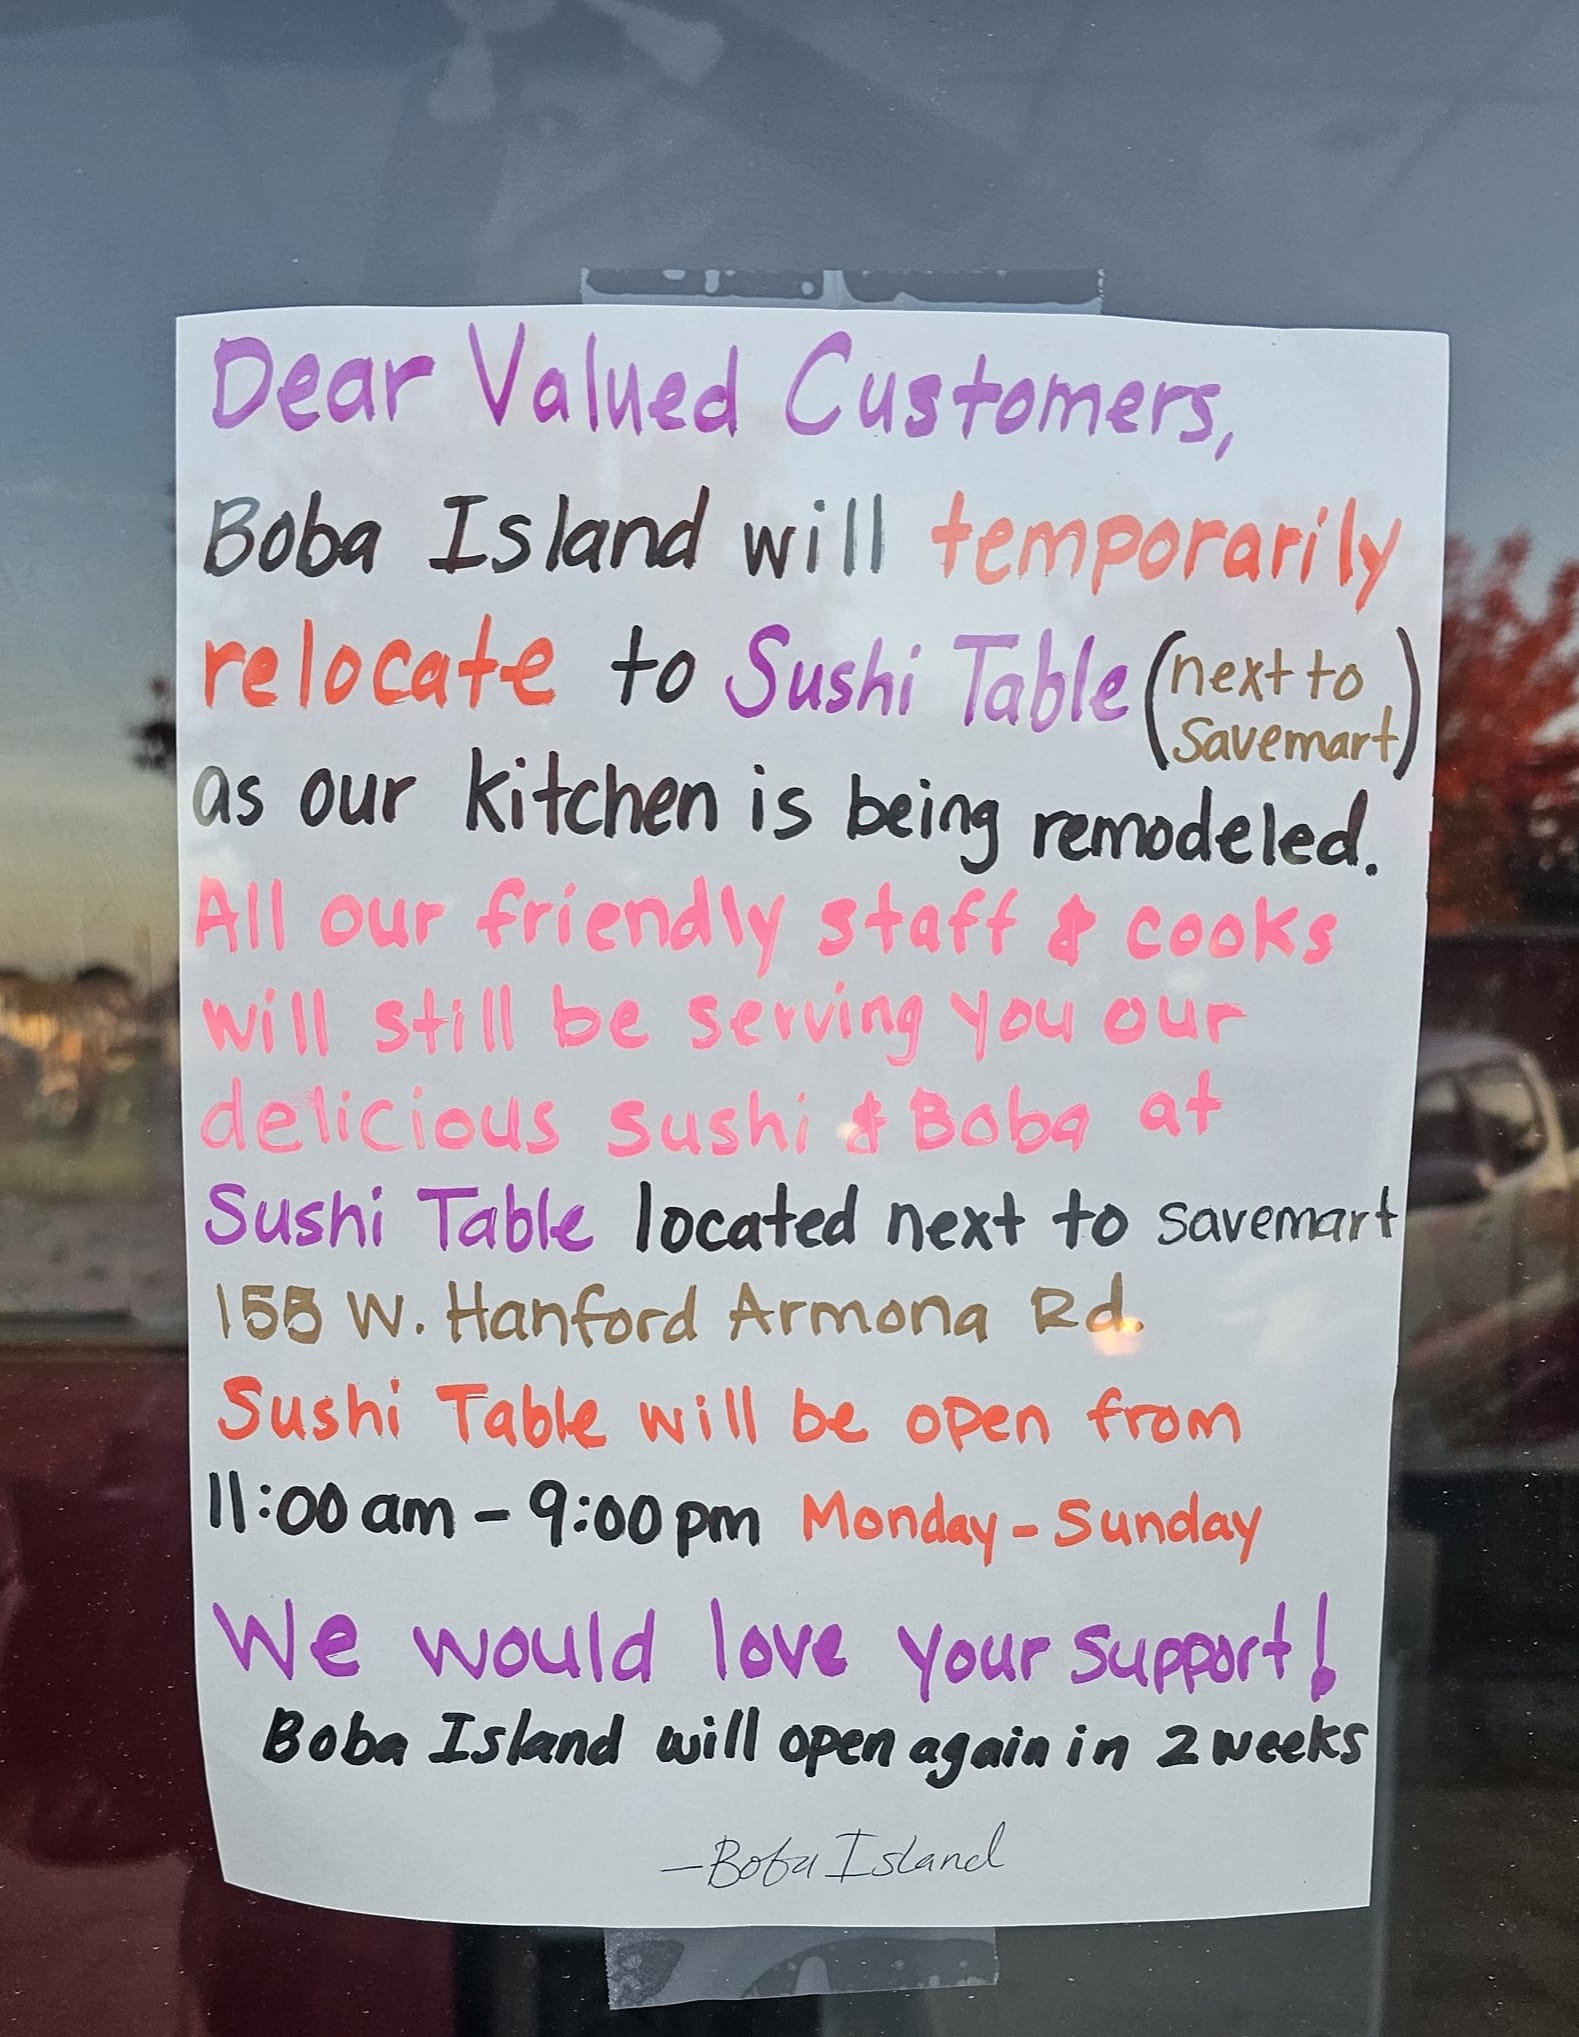 Dear Valued Customers,
Boba Island will temporarily
relocate to Sushi Table (next to
savemart)
as our kitchen is being remodeled.
All our friendly staff & cooks
will still be serving you our
delicious sushi & Boba at
Sushi Table located next to savemart
155 W. Hanford Armona Rd.
Sushi Table will be open from
11:00 am - 9:00 pm Monday - Sunday
We would love your support!
Boba Island will open again in 2 weeks
- Boba Island